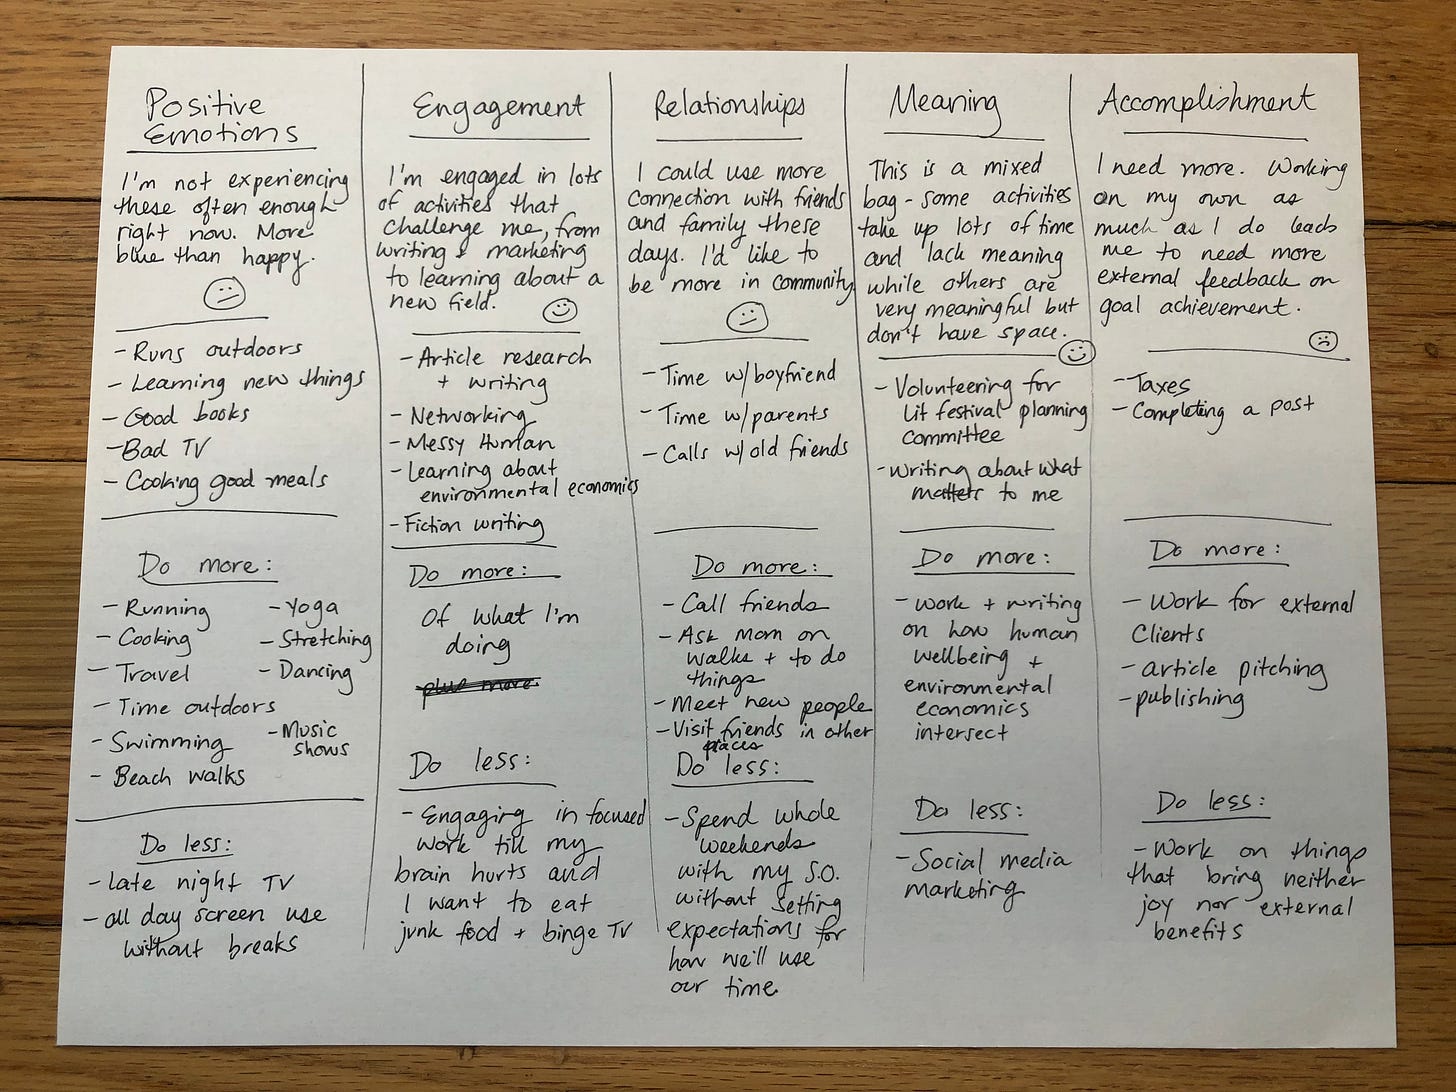 Positive
Emotions
I'm not experiencing
these often enough
right now. More
blue than happy.
- Runs outdoors
- Learning new things
- Good books
- Bad TV
- Cooking good meals
Do more:
- Running
- Cooking
- Travel
- Time outdoors
- Swimming
- Beach walks
- Yoga
- Stretching
- Dancing
- Music
shows
Do less:
- late night TV
- all day screen use
without breaks
Engagement
I'm engaged in lots
of activities that
challenge me, from
writing & marketing
to learning about a
new field.
- Article research
+ writing
- Networking
- Messy Human
- Learning about
environmental economics
- Fiction writing
Do more:
Of what I'm
doing
plus more.
Do less:
- Engaging in focused
work till my
brain hurts and
I want to eat
junk food + binge TV
Relationships
I could use more
connection with friends
and family these
days. I'd like to
be more in community
- Time w/boyfriend
- Time w/parents
- Calls w/old friends
Do more:
- Call friends
- Ask mom on
walks + to do
things
- Meet new people
- Visit friends in other
places
Do less:
- Spend whole
weekends
with my S.O.
without setting
expectations for
how we'll use
our time
Meaning
This is a mixed
bag - some activities
take up lots of time
and lack meaning
while others are
very meaningful but
don't have space.
- Volunteering for
Lit festival planning
committee
- writing about what
matters to me
Do more:
- work + writing
on how human
wellbeing +
environmental
economics
intersect
Do less:
- Social media
marketing
Accomplishment
I need more. Working
on my own as
much as I do leads
me to need more
external feedback on
goal achievement.
- Taxes
- Completing a post
Do more:
- Work for external
clients
- article pitching
- publishing
Do less:
- Work on things
that bring neither
joy nor external
benefits